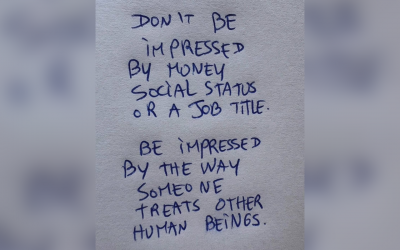 DON'T BE
iMPRESSED
BY MONEY
SOCiAL STATUS
OR A JOB TITLE.
BE iMPRESSED
BY THE WAY
SOMEONE
TREATS OTHER
HUMAN BEiNGS.